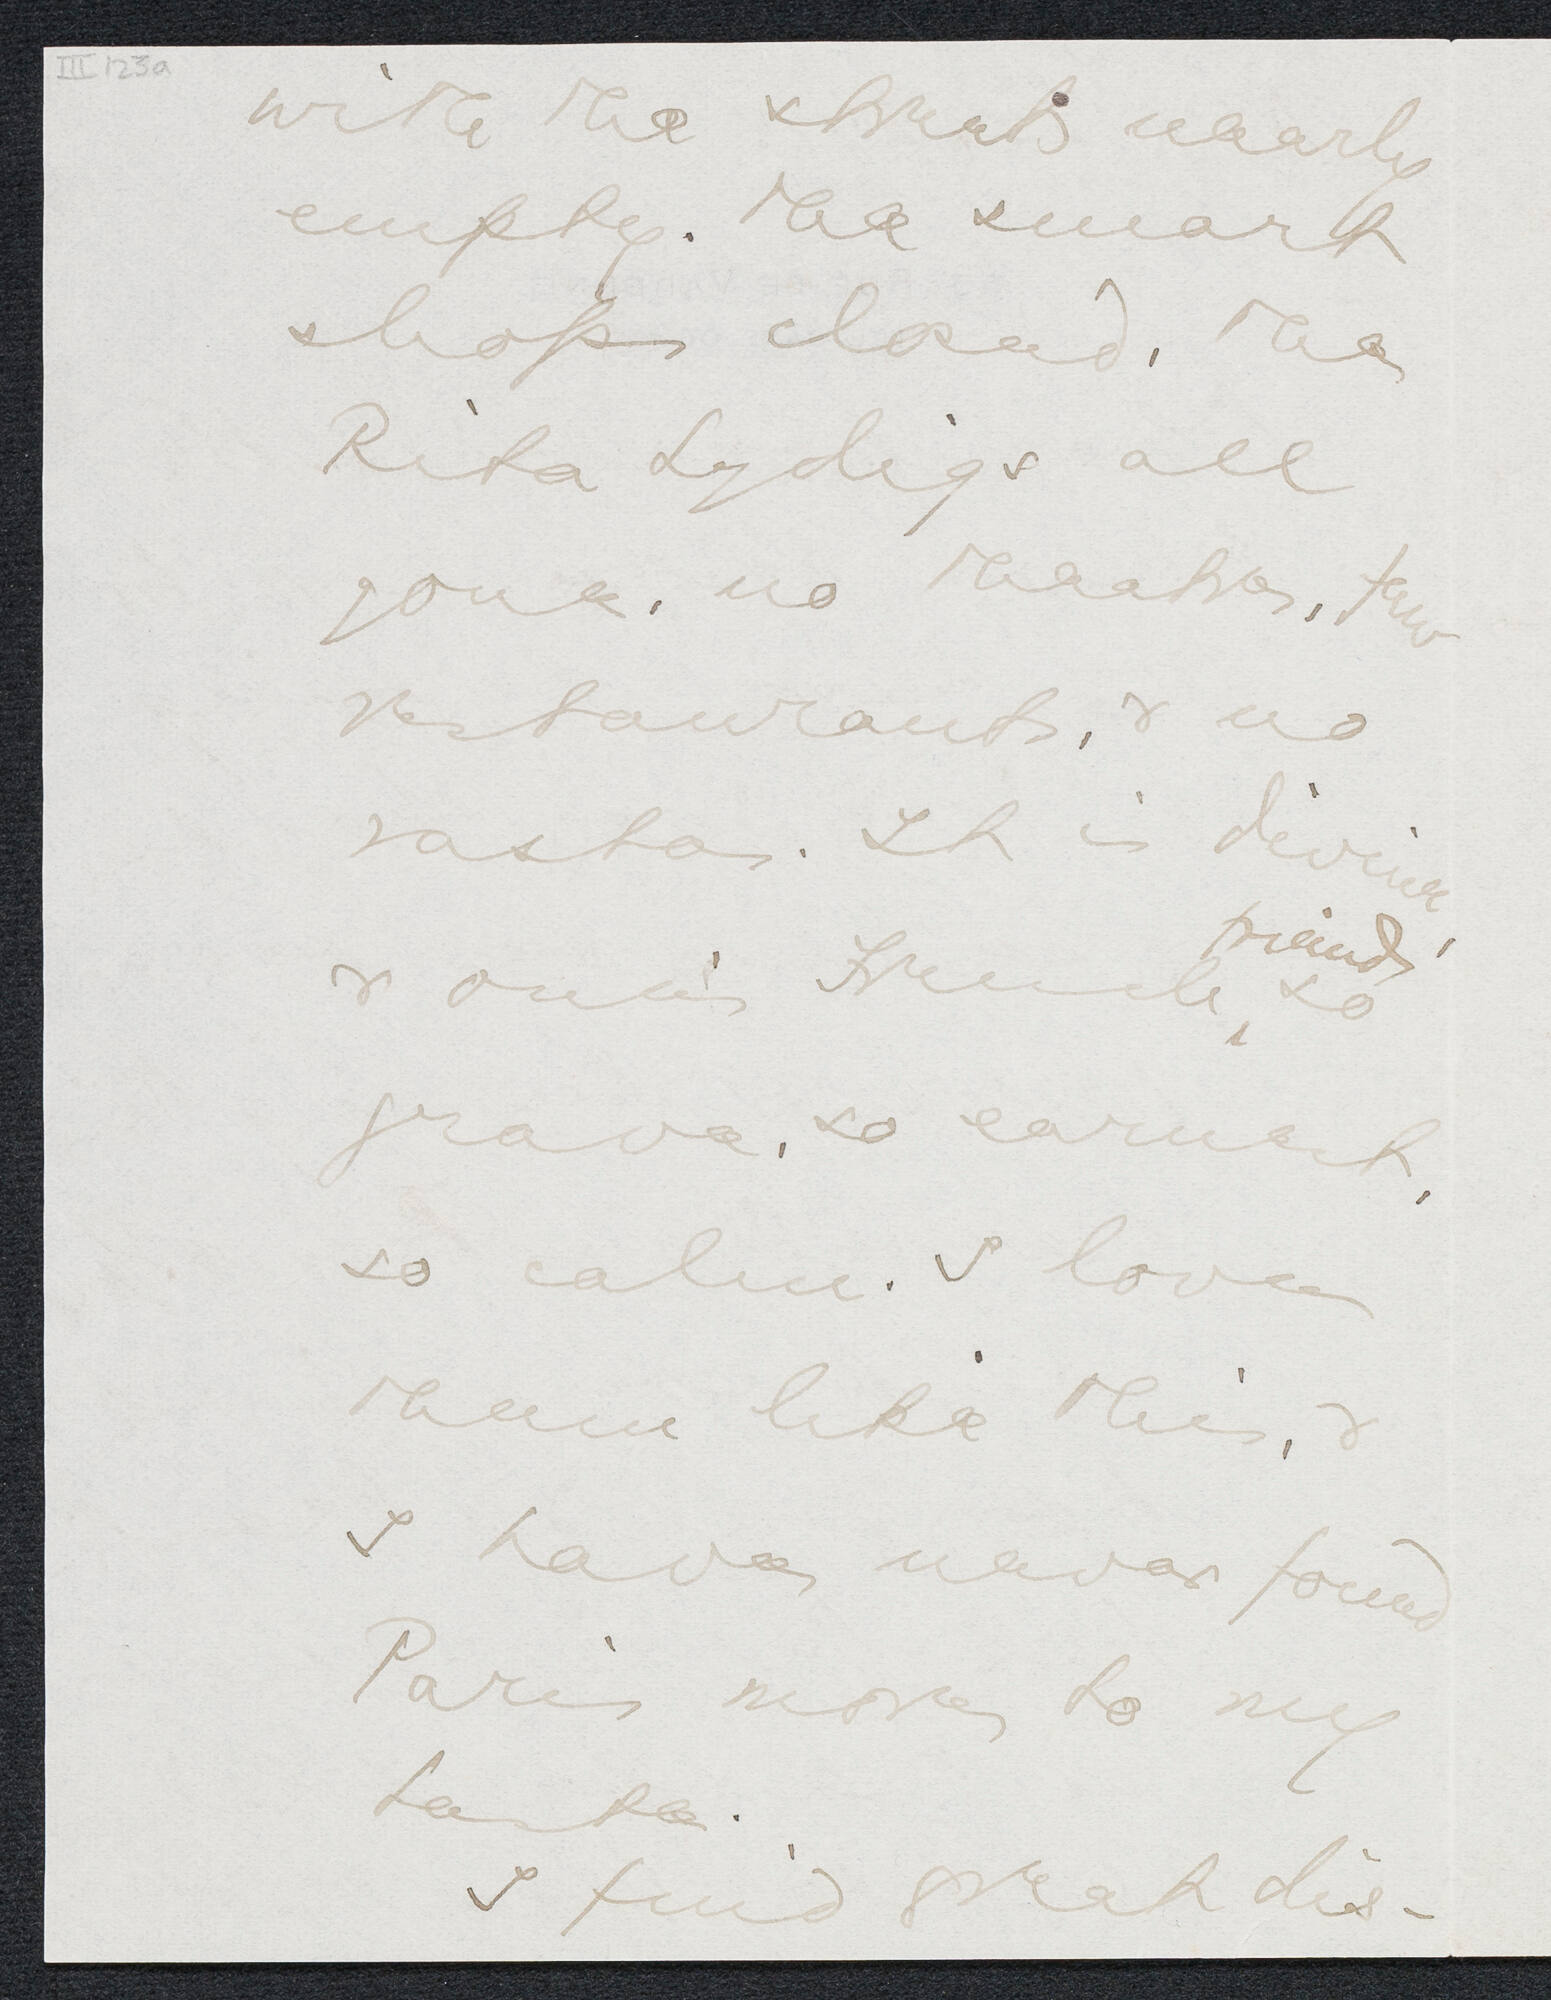 III 123a
with the streets nearly
empty. The smart
shops closed, the
Rita Lydigs all
gone, no theatres, few
restaurants, & no
rastas. It is divine,
friends
& one's French, so
grave, so earnest,
so calm. I love
them like this, &
I have never found
Paris more to my
taste.
I find great dis-